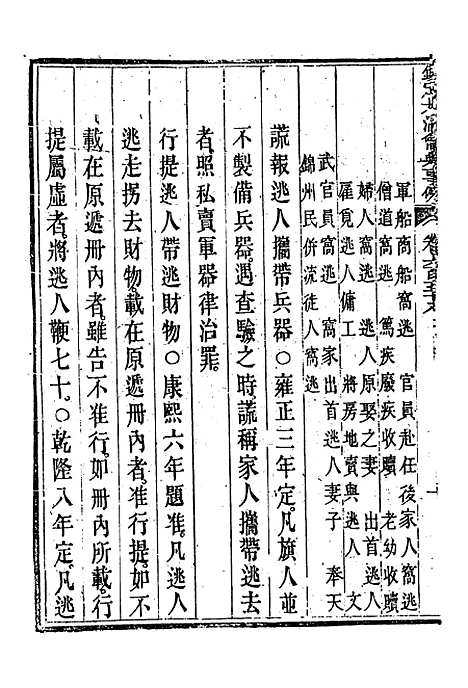 欽定大清會典事例
軍船商船窩逃　官員赴任後家人窩逃
僧道窩逃　篤疾廢疾收贖　老幼收贖
婦人窩逃　逃人原娶之妻　出首逃人
雇覓逃人傭工　將房地賣與逃人　文
武官員窩逃　窩家出首逃人妻子　奉天
錦州民併流徒人窩逃
謊報逃人攜帶兵器○雍正三年定凡旗人並
不製備兵器遇查驗之時謊稱家人攜帶逃去
者照私賣軍器律治罪
行提逃人帶逃財物○康熙六年題准凡逃人
逃走拐去財物載在原遞冊內者准行提如不
載在原遞冊內者雖告不准行如冊內所載行
提屬虛者將逃人鞭七十○乾隆八年定凡逃